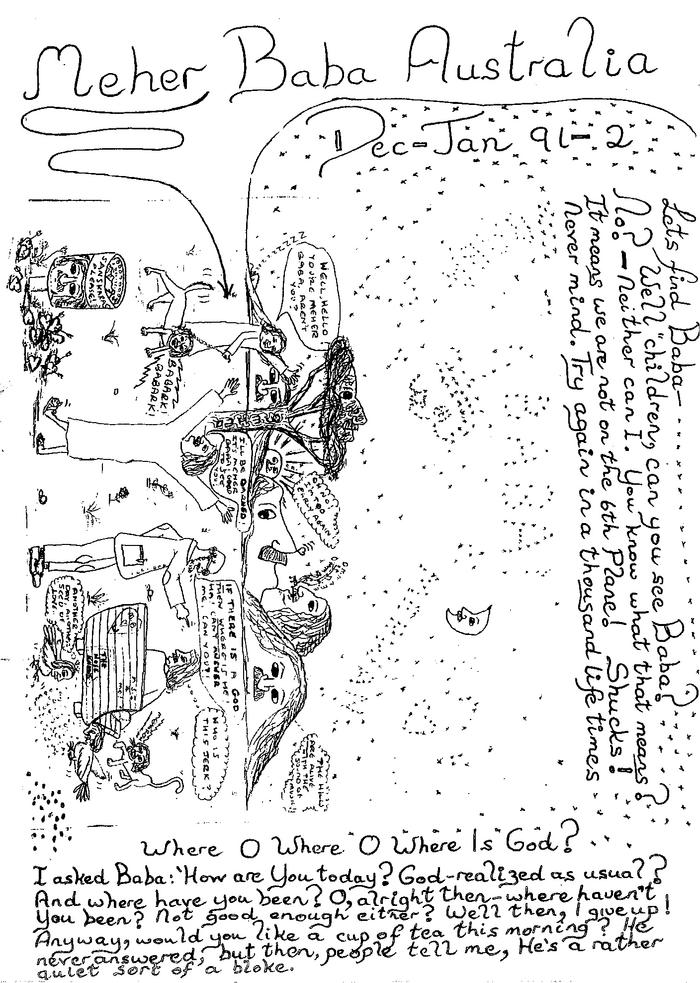 Meher Baba Australia
Dec-Jan 91-2
Lets find Baba—
? Well "children, can you see Baba?
No! — Neither can I. You know what that means?
It means we are not on the 6th Plane! Shucks!
Never mind. Try again in a thousand life times
ZZZZ
WELL HELLO
YOU'RE MEHER
BABA, AREN'T
YOU?
BABARK!
BABARK!
I'LL BE DARNED
IT'S MEHER
BABA! GOD
IF THERE IS A GOD
THEN WHERE IS HE
CAN YOU?
WHO IS
THIS JERK?
ANOTHER
THE HILLS
ARE ALIVE
WITH THE
SOUND OF
Where O Where O Where Is God?
I asked Baba: 'How are You today? God-realized as usual?
And where have you been? O, alright then—where haven't
You been? Not good enough either? Well then, I give up!
Anyway, would you like a cup of tea this morning? He
never answered, but then, people tell me, He's a rather
quiet sort of a bloke.